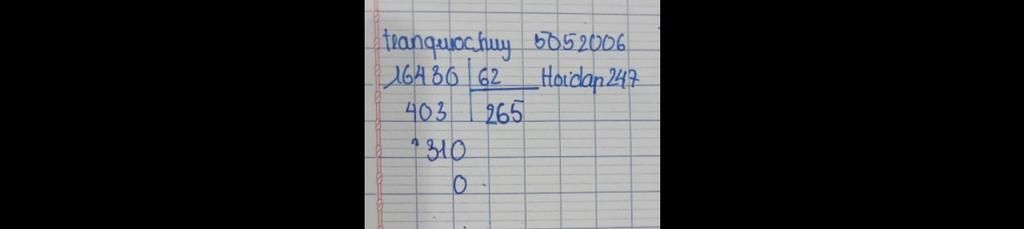 tranquochuy 5052006
16430 62 Hoidap247
403 265
310
0